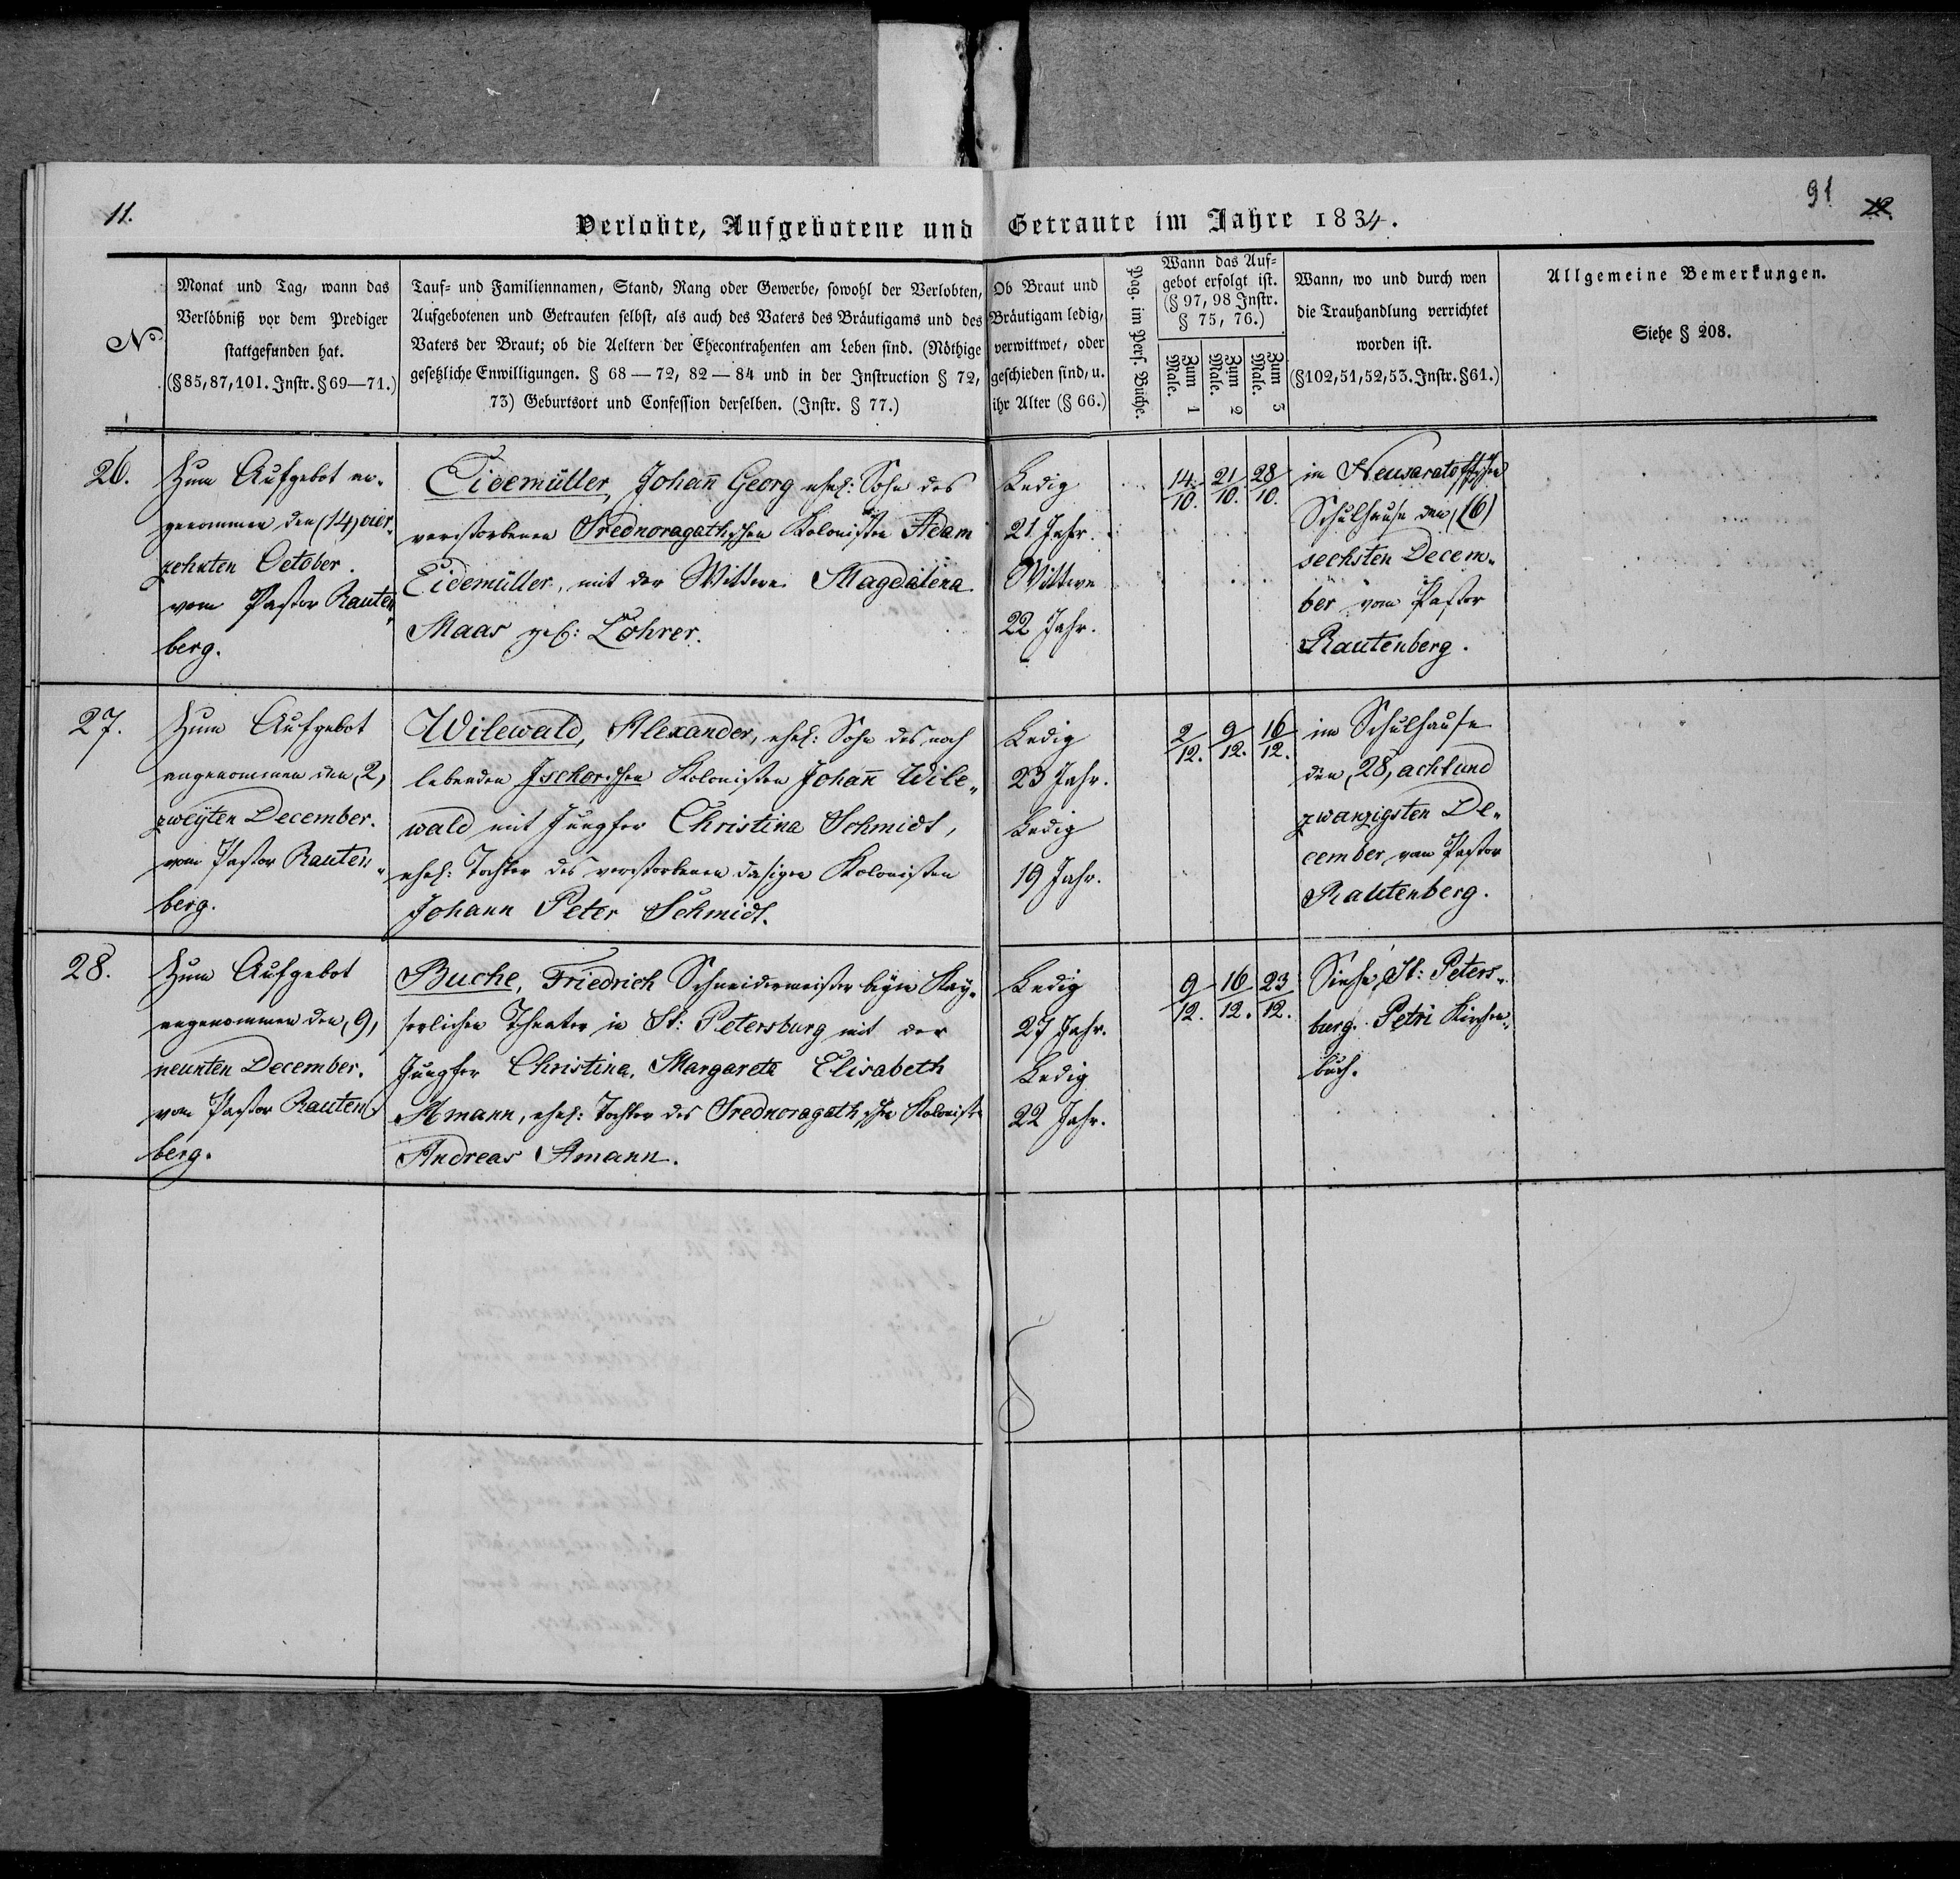 11.
91
Verlobte, Aufgebotene und Getraute im Jahre 1834.
No
Monat und Tag, wann das
Verlöbniß vor dem Prediger
stattgefunden hat.
(§85,87,101. Instr. §69—71.)
Tauf- und Familiennamen, Stand, Rang oder Gewerbe, sowohl der Verlobten,
Aufgebotenen und Getrauten selbst, als auch des Vaters des Bräutigams und des
Vaters der Braut; ob die Aeltern der Ehecontrahenten am Leben sind. (Nöthige
gesetzliche Enwilligungen. § 68—72, 82—84 und in der Instruction § 72,
73) Geburtsort und Confession derselben. (Instr. § 77.)
Ob Braut und
Bräutigam ledig,
verwittwet, oder
geschieden sind, u.
ihr Alter (§ 66.)
Pag. im Pers. Buche.
Wann das Auf-
gebot erfolgt ist.
(§ 97, 98 Instr.
§ 75, 76.)
Zum 1 Male.
Zum 2 Male.
Zum 3 Male.
Wann, wo und durch wen
die Trauhandlung verrichtet
worden ist.
(§102,51,52,53. Instr. §61.)
Allgemeine Bemerkungen.
Siehe § 208.
26.
Zum Aufgebot an-
genommen den (14) vier-
zehnten October.
vom Pastor Rauten-
berg.
Eidemüller, Johan̄ Georg ehel: Sohn des
verstorbenen Srednoragathschen Kolonisten Adam
Eidemüller, mit der Wittwe Magdalena
Maas geb: Löhrer.
Ledig
21 Jahr.
Wittwe
22 Jahr.
14/10. 21/10. 28/10.
im Neusaratoffschen
Schulhause den (6)
sechsten Decem-
ber vom Pastor
Rautenberg.
27.
Zum Aufgebot
angenommen den 2,
zweyten December.
vom Pastor Rauten-
berg.
Wilewald, Alexander, ehel: Sohn des noch
lebenden Ischorschen Kolonisten Johan̄ Wile-
wald mit Jungfer Christina Schmidt,
ehel: Tochter des verstorbenen dasigen Kolonisten
Johann Peter Schmidt.
Ledig
23 Jahr.
Ledig
19 Jahr.
2/12. 9/12. 16/12.
im Schulhause
den, 28, achtund
zwanzigsten De-
cember, vom Pastor
Rautenberg.
28.
Zum Aufgebot
angenommen den, 9,
neunten December.
vom Pastor Rauten-
berg.
Buche, Friedrich Schneidermeister beym Kay-
serlichen Theater in St: Petersburg mit der
Jungfer Christina, Margareta Elisabeth
Amann, ehel: Tochter des Srednoragathschen Koloniste
Andreas Amann.
Ledig
27 Jahr.
Ledig
22 Jahr.
9/12. 16/12. 23/12.
Siehe, St: Peters-
burg. Petri Kirchen-
buch.